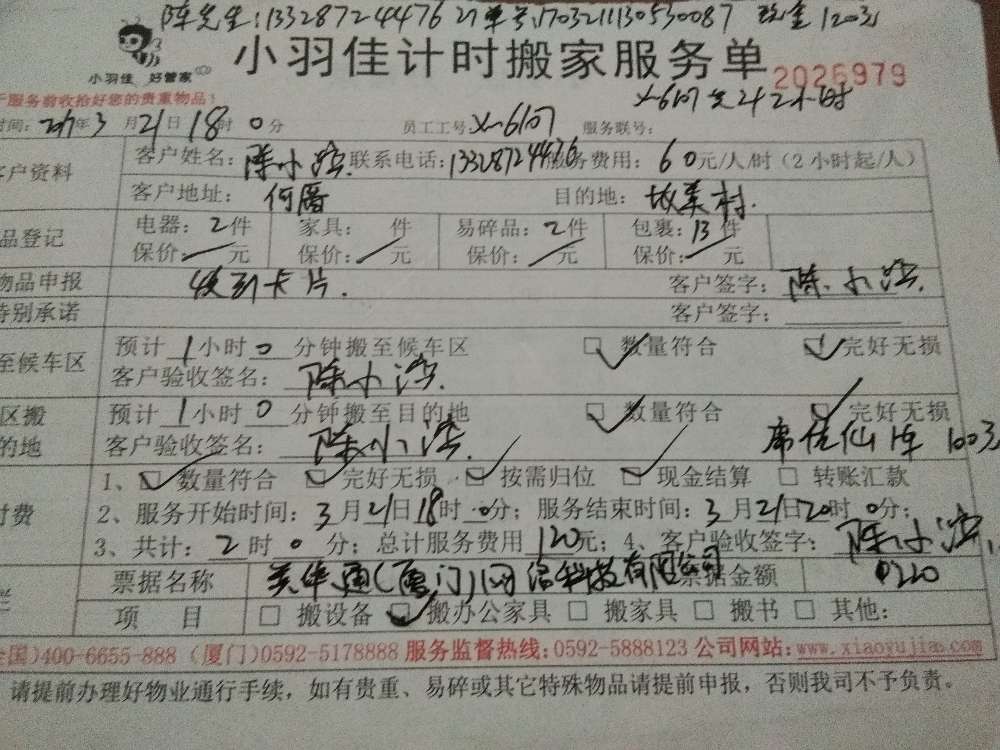 陈先生:13328724476 21单号170321130530087 现金120元
小羽佳 好管家
小羽佳计时搬家服务单 2026979
于服务前收拾好您的贵重物品!
xm6107 足242小时
时间: 2017年3月21日18时0分 员工工号:xm6107 服务联号:
客户资料
客户姓名: 陈小 联系电话:13328724476 服务费用:60元/人/时(2小时起/人)
客户地址: 何厝 目的地: 坂美村.
品登记
电器:2件 家具: 件 易碎品:2件 包裹:13件
保价: 元 保价: 元 保价: 元 保价: 元
物品申报 收到卡片. 客户签字: 陈小
特别承诺 客户签字:
至候车区
预计1小时0分钟搬至候车区 数量符合 完好无损
客户验收签名: 陈小
区搬
的地
预计1小时0分钟搬至目的地 数量符合 完好无损
客户验收签名: 陈小
100元
1、 数量符合 完好无损 按需归位 现金结算 转账汇款
付费
2、服务开始时间:3月21日18时0分; 服务结束时间:3月21日20时0分;
3、共计:2时0分; 总计服务费用120元; 4、客户验收签字: 陈小
票据名称 英华通(厦门)网络科技有限公司 票据金额 0220
项 目 搬设备 搬办公家具 搬家具 搬书 其他:
全国)400-6655-888 (厦门)0592-5178888 服务监督热线:0592-5888123 公司网站:www.xiaoyujia.com
请提前办理好物业通行手续,如有贵重、易碎或其它特殊物品请提前申报,否则我司不予负责。